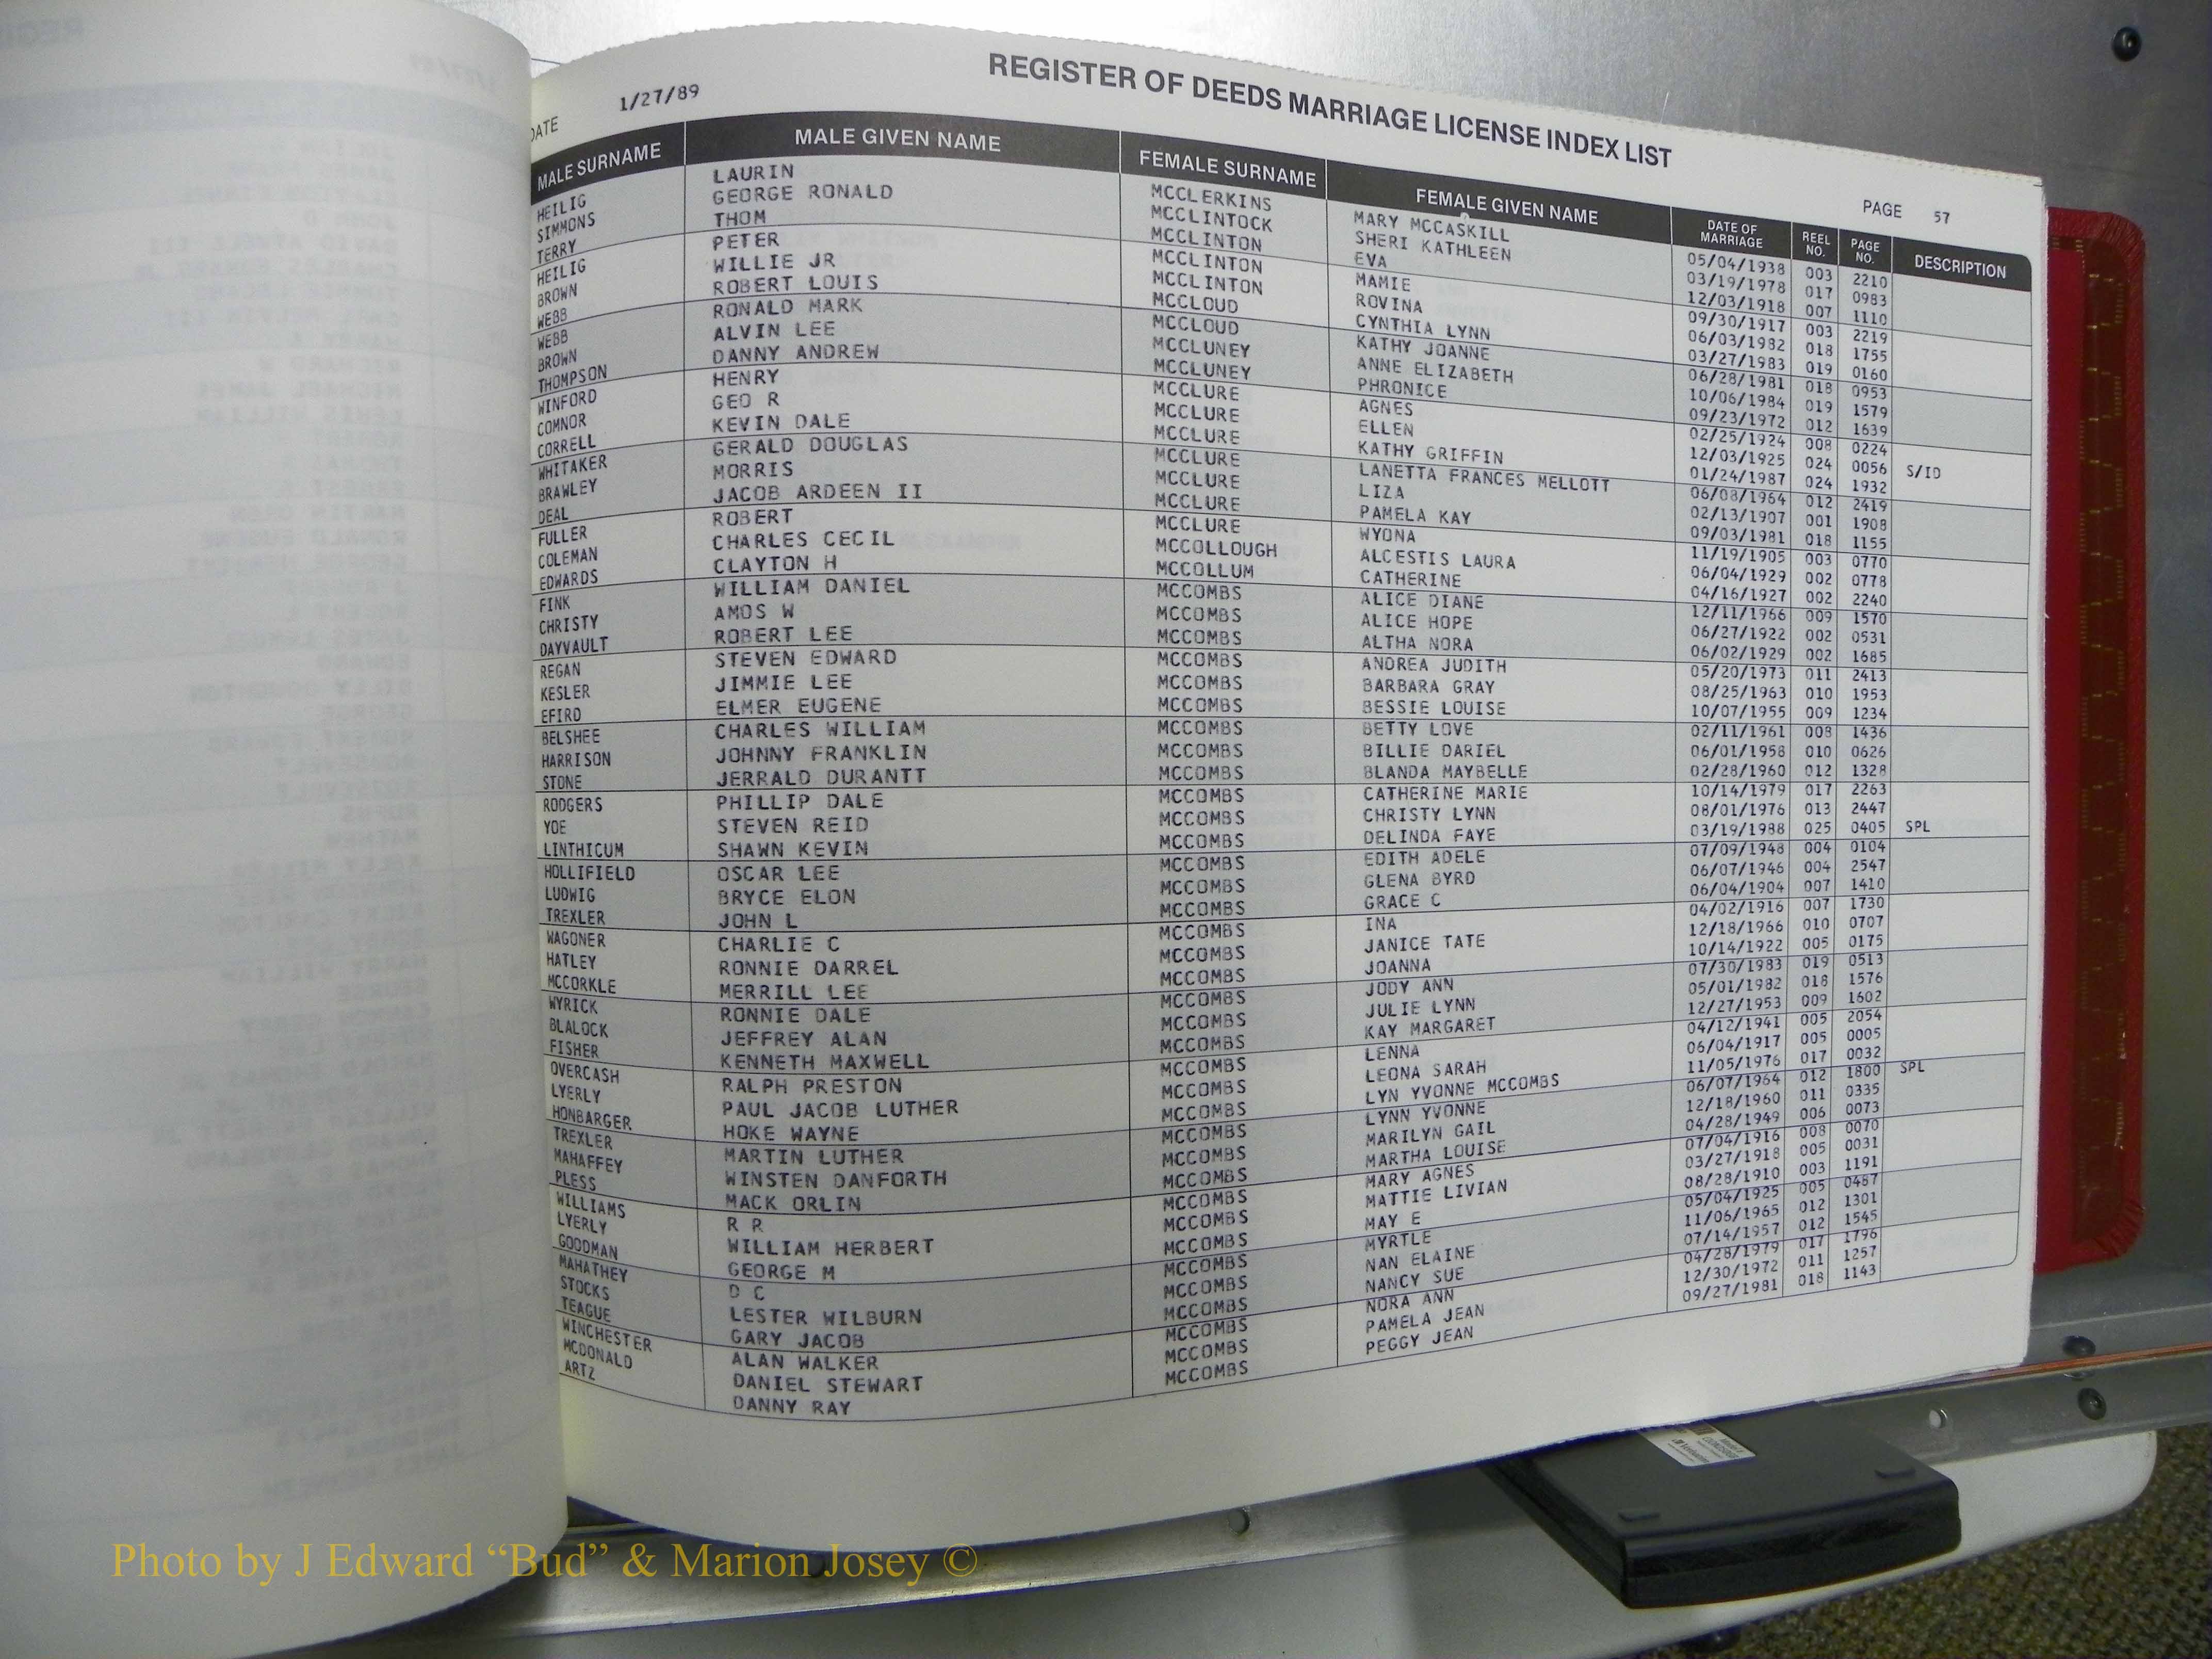 REGISTER OF DEEDS MARRIAGE LICENSE INDEX LIST
DATE 1/27/89 PAGE 57
MALE SURNAME MALE GIVEN NAME FEMALE SURNAME FEMALE GIVEN NAME DATE OF MARRIAGE REEL NO. PAGE NO. DESCRIPTION
HEILIG LAURIN MCCLERKINS MARY MCCASKILL 05/04/1938 003 2210
SIMMONS GEORGE RONALD MCCLINTOCK SHERI KATHLEEN 03/19/1978 017 0983
TERRY THOM MCCLINTON EVA 12/03/1918 007 1110
HEILIG PETER MCCLINTON MAMIE 09/30/1917 003 2219
BROWN WILLIE JR MCCLINTON ROVINA 06/03/1982 018 1755
WEBB ROBERT LOUIS MCCLOUD CYNTHIA LYNN 03/27/1983 019 0160
WEBB RONALD MARK MCCLOUD KATHY JOANNE 06/28/1981 018 0953
BROWN ALVIN LEE MCCLUNEY ANNE ELIZABETH 10/06/1984 019 1579
THOMPSON DANNY ANDREW MCCLUNEY PHRONICE 09/23/1972 012 1639
WINFORD HENRY MCCLURE AGNES 02/25/1924 008 0224
COMNOR GEO R MCCLURE ELLEN 12/03/1925 024 0056 S/ID
CORRELL KEVIN DALE MCCLURE KATHY GRIFFIN 01/24/1987 024 1932
WHITAKER GERALD DOUGLAS MCCLURE LANETTA FRANCES MELLOTT 06/08/1964 012 2419
BRAWLEY MORRIS MCCLURE LIZA 02/13/1907 001 1908
DEAL JACOB ARDEEN II MCCLURE PAMELA KAY 09/03/1981 018 1155
FULLER ROBERT MCCLURE WYONA 11/19/1905 003 0770
COLEMAN CHARLES CECIL MCCOLLOUGH ALCESTIS LAURA 06/04/1929 002 0778
EDWARDS CLAYTON H MCCOLLUM CATHERINE 04/16/1927 002 2240
FINK WILLIAM DANIEL MCCOMBS ALICE DIANE 12/11/1966 009 1570
CHRISTY AMOS W MCCOMBS ALICE HOPE 06/27/1922 002 0531
DAYVAULT ROBERT LEE MCCOMBS ALTHA NORA 06/02/1929 002 1685
REGAN STEVEN EDWARD MCCOMBS ANDREA JUDITH 05/20/1973 011 2413
KESLER JIMMIE LEE MCCOMBS BARBARA GRAY 08/25/1963 010 1953
EFIRD ELMER EUGENE MCCOMBS BESSIE LOUISE 10/07/1955 009 1234
BELSHEE CHARLES WILLIAM MCCOMBS BETTY LOVE 02/11/1961 008 1436
HARRISON JOHNNY FRANKLIN MCCOMBS BILLIE DARIEL 06/01/1958 010 0626
STONE JERRALD DURANTT MCCOMBS BLANDA MAYBELLE 02/28/1960 012 1328
RODGERS PHILLIP DALE MCCOMBS CATHERINE MARIE 10/14/1979 017 2263
YOE STEVEN REID MCCOMBS CHRISTY LYNN 08/01/1976 013 2447
LINTHICUM SHAWN KEVIN MCCOMBS DELINDA FAYE 03/19/1988 025 0405 SPL
HOLLIFIELD OSCAR LEE MCCOMBS EDITH ADELE 07/09/1948 004 0104
LUDWIG BRYCE ELON MCCOMBS GLENA BYRD 06/07/1946 004 2547
TREXLER JOHN L MCCOMBS GRACE C 06/04/1904 007 1410
WAGONER CHARLIE C MCCOMBS INA 04/02/1916 007 1730
HATLEY RONNIE DARREL MCCOMBS JANICE TATE 12/18/1966 010 0707
MCCORKLE MERRILL LEE MCCOMBS JOANNA 10/14/1922 005 0175
WYRICK RONNIE DALE MCCOMBS JODY ANN 07/30/1983 019 0513
BLALOCK JEFFREY ALAN MCCOMBS JULIE LYNN 05/01/1982 018 1576
FISHER KENNETH MAXWELL MCCOMBS KAY MARGARET 12/27/1953 009 1602
OVERCASH RALPH PRESTON MCCOMBS LENNA 04/12/1941 005 2054
LYERLY PAUL JACOB LUTHER MCCOMBS LEONA SARAH 06/04/1917 005 0005
HONBARGER HOKE WAYNE MCCOMBS LYN YVONNE MCCOMBS 11/05/1976 017 0032
TREXLER MARTIN LUTHER MCCOMBS LYNN YVONNE 06/07/1964 012 1800 SPL
MAHAFFEY WINSTEN DANFORTH MCCOMBS MARILYN GAIL 12/18/1960 011 0335
PLESS MACK ORLIN MCCOMBS MARTHA LOUISE 04/28/1949 006 0073
WILLIAMS R R MCCOMBS MARY AGNES 07/04/1916 008 0070
LYERLY WILLIAM HERBERT MCCOMBS MATTIE LIVIAN 03/27/1918 005 0031
GOODMAN GEORGE M MCCOMBS MAY E 08/28/1910 003 1191
MAHATHEY D C MCCOMBS MYRTLE 05/04/1925 005 0487
STOCKS LESTER WILBURN MCCOMBS NAN ELAINE 11/06/1965 012 1301
TEAGUE GARY JACOB MCCOMBS NANCY SUE 07/14/1957 012 1545
WINCHESTER ALAN WALKER MCCOMBS NORA ANN 04/28/1979 017 1796
MCDONALD DANIEL STEWART MCCOMBS PAMELA JEAN 12/30/1972 011 1257
ARTZ DANNY RAY MCCOMBS PEGGY JEAN 09/27/1981 018 1143
Photo by J Edward “Bud” & Marion Josey ©